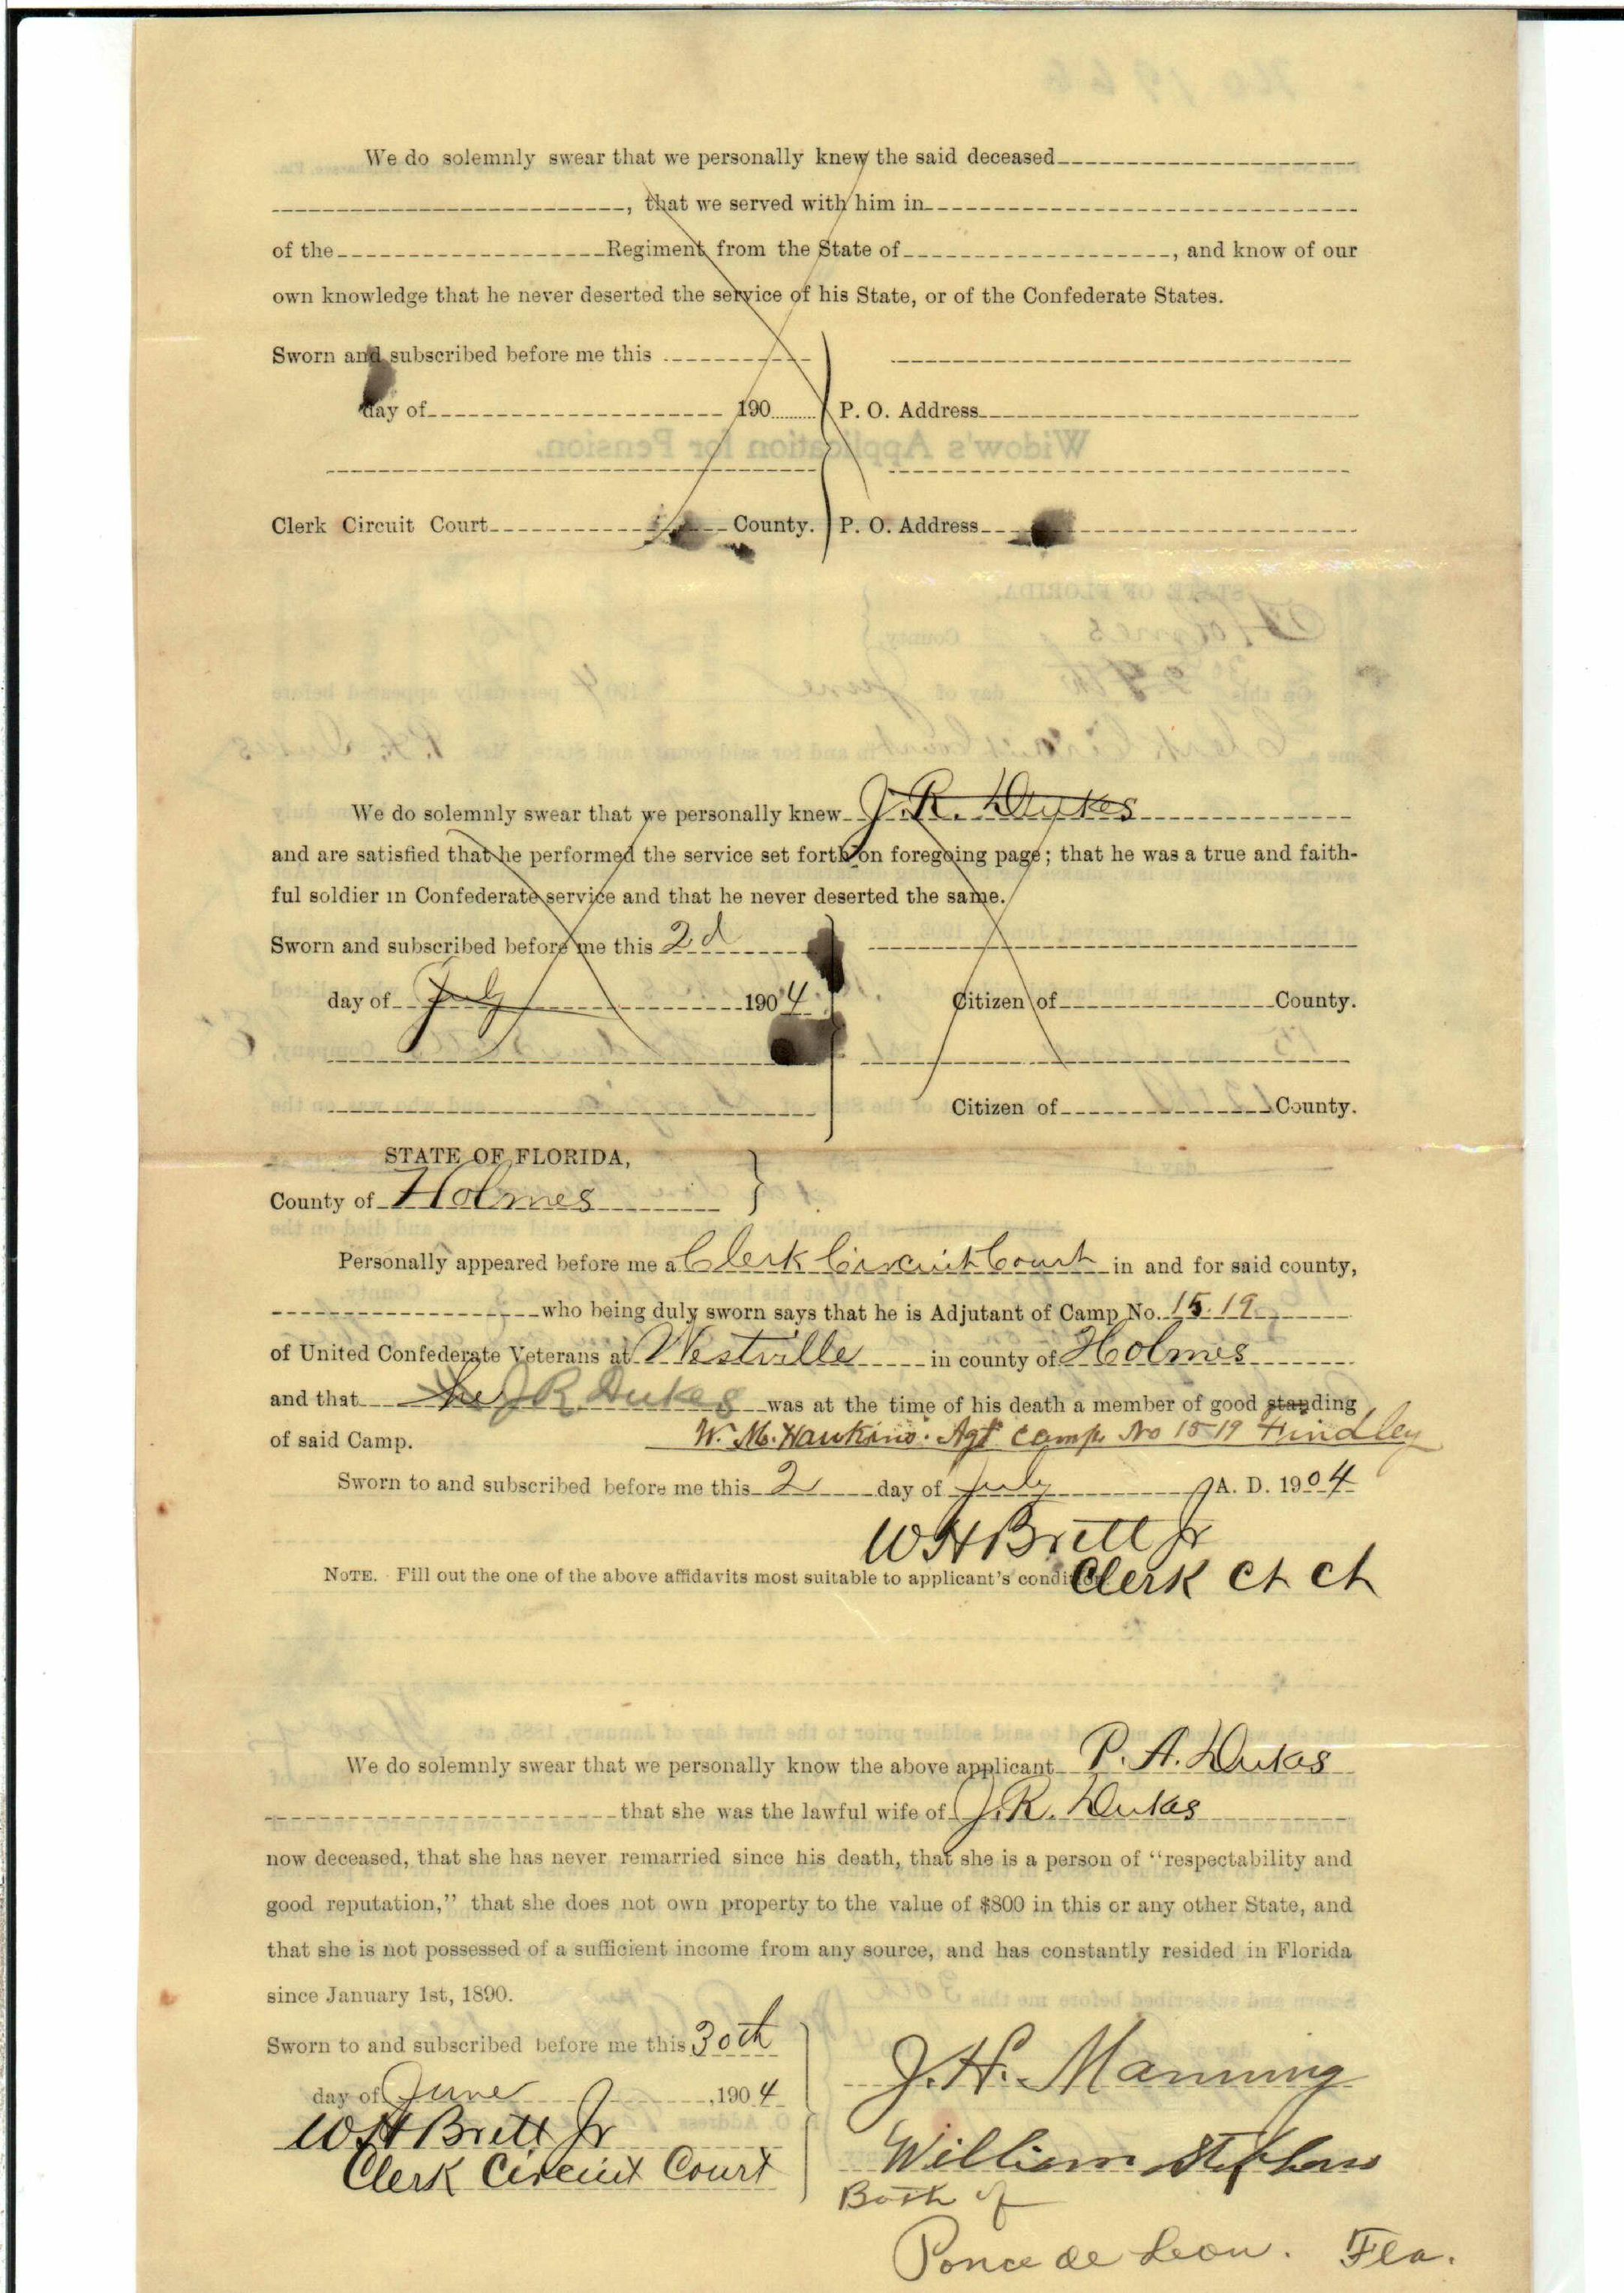 We do solemnly swear that we personally knew the said deceased
, that we served with him in
of the Regiment from the State of , and know of our
own knowledge that he never deserted the service of his State, or of the Confederate States.
Sworn and subscribed before me this
day of 190 P. O. Address
Widow's Application for Pension.
Clerk Circuit Court County. P. O. Address
STATE OF FLORIDA.
Holmes County.
We do solemnly swear that we personally knew J. R. Dukes
and are satisfied that he performed the service set forth on foregoing page; that he was a true and faith-
ful soldier in Confederate service and that he never deserted the same.
Sworn and subscribed before me this 2d
day of July 1904 Citizen of County.
Citizen of County.
STATE OF FLORIDA,
County of Holmes
Personally appeared before me a Clerk Circuit Court in and for said county,
who being duly sworn says that he is Adjutant of Camp No. 15.19
of United Confederate Veterans at Westville in county of Holmes
and that he J R Dukes was at the time of his death a member of good standing
of said Camp. W. M. Hawkins. Agt Camp No 15-19 Findley
Sworn to and subscribed before me this 2 day of July A. D. 1904
W H Brett Jr
NOTE. Fill out the one of the above affidavits most suitable to applicant's condition Clerk Ct Ct
We do solemnly swear that we personally know the above applicant P. A. Dukes
that she was the lawful wife of J. R. Dukes
now deceased, that she has never remarried since his death, that she is a person of "respectability and
good reputation," that she does not own property to the value of $800 in this or any other State, and
that she is not possessed of a sufficient income from any source, and has constantly resided in Florida
since January 1st, 1890.
Sworn to and subscribed before me this 30th
day of June, 1904 J. H. Manning
W H Brett Jr
Clerk Circuit Court William Stephens
Both of
Ponce de Leon. Fla.